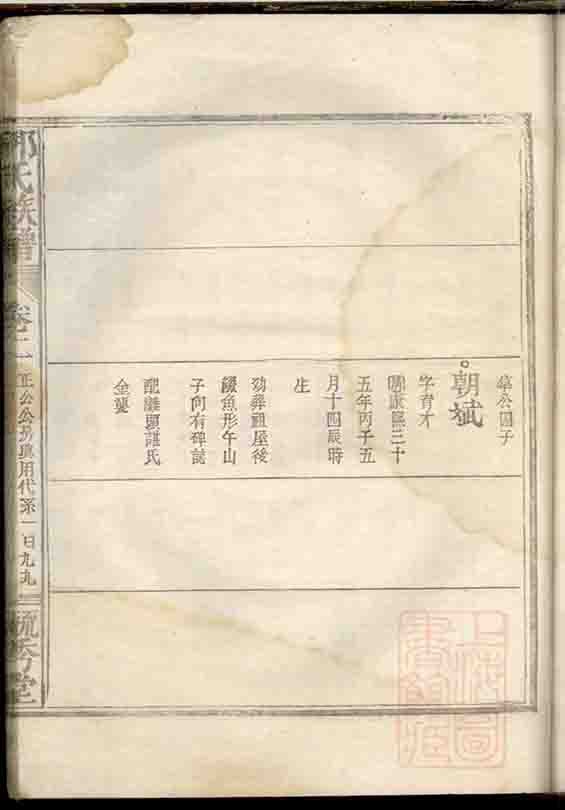 公四子
朝斌
字育才
康熙三十
五年丙子五
月十四辰時
生
歿葬祖屋後
鰕魚形午山
子向有碑誌
配離頭諶氏
仝塟
氏族譜
卷二
正公公房與用代系一百九九
上海圖書館藏